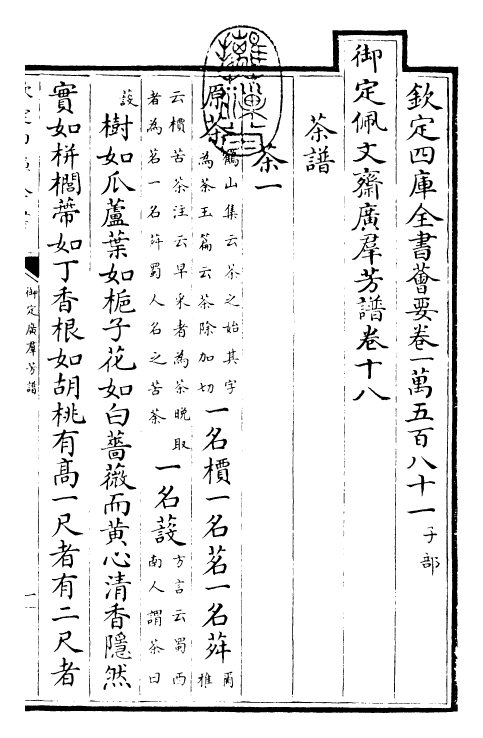 欽定四庫全書薈要卷一萬五百八十一 子部
御定佩文齋廣羣芳譜卷十八
茶譜
茶一
原茶 鶴山集云茶之始其字
為荼玉篇云荼除加切 一名檟一名茗一名荈 爾雅
云檟苦荼注云早采者為茶晚取
者為茗一名荈蜀人名之苦荼 一名蔎 方言云蜀西
南人謂茶曰
蔎 樹如瓜蘆葉如梔子花如白薔薇而黃心清香隱然
實如栟櫚蔕如丁香根如胡桃有高一尺者有二尺者
御定廣羣芳譜
一